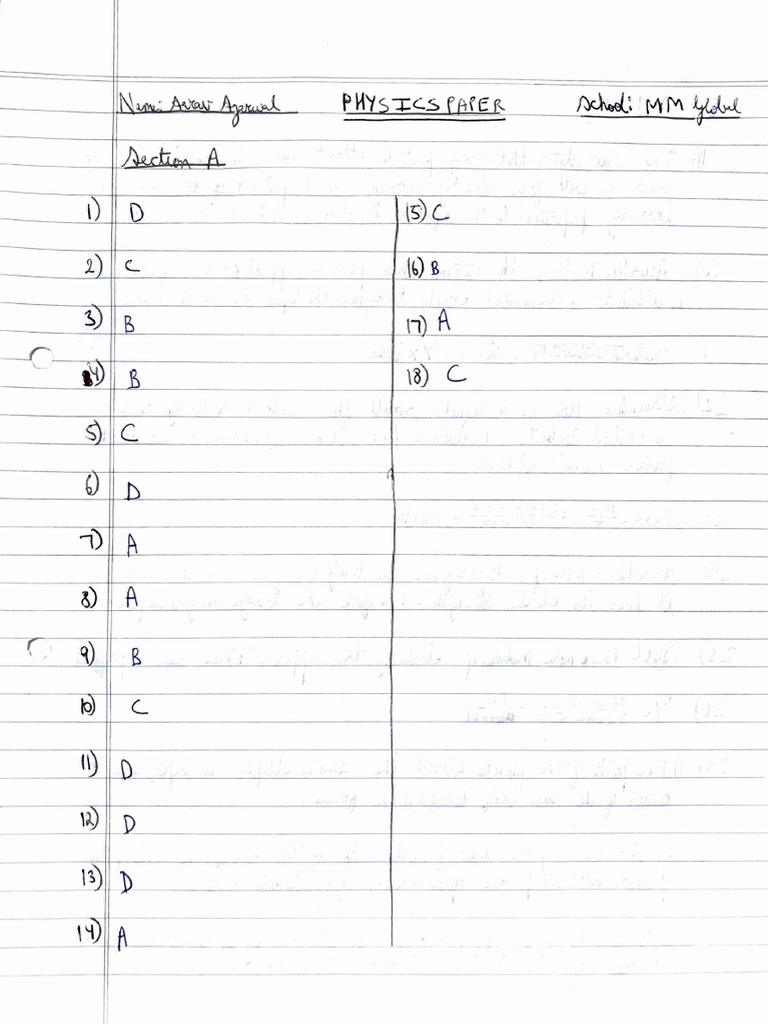 Name: Aarav Agrawal PHYSICS PAPER School: MM Global
Section A
1) D
2) C
3) B
4) B
5) C
6) D
7) A
8) A
9) B
10) C
11) D
12) D
13) D
14) A
15) C
16) B
17) A
18) C